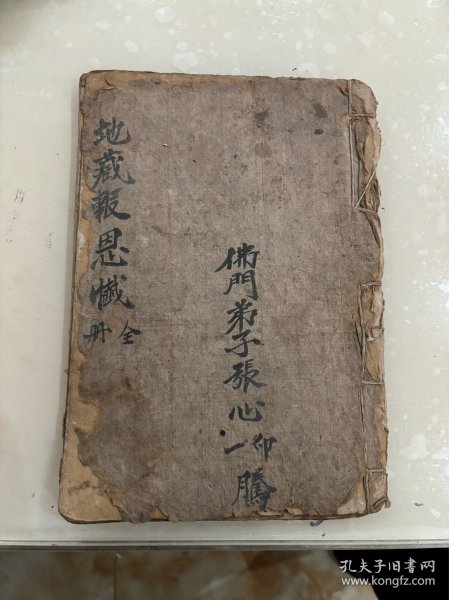 地藏報恩懺
全册
佛門弟子張心一印
騰
孔夫子旧书网
www.kongfz.com